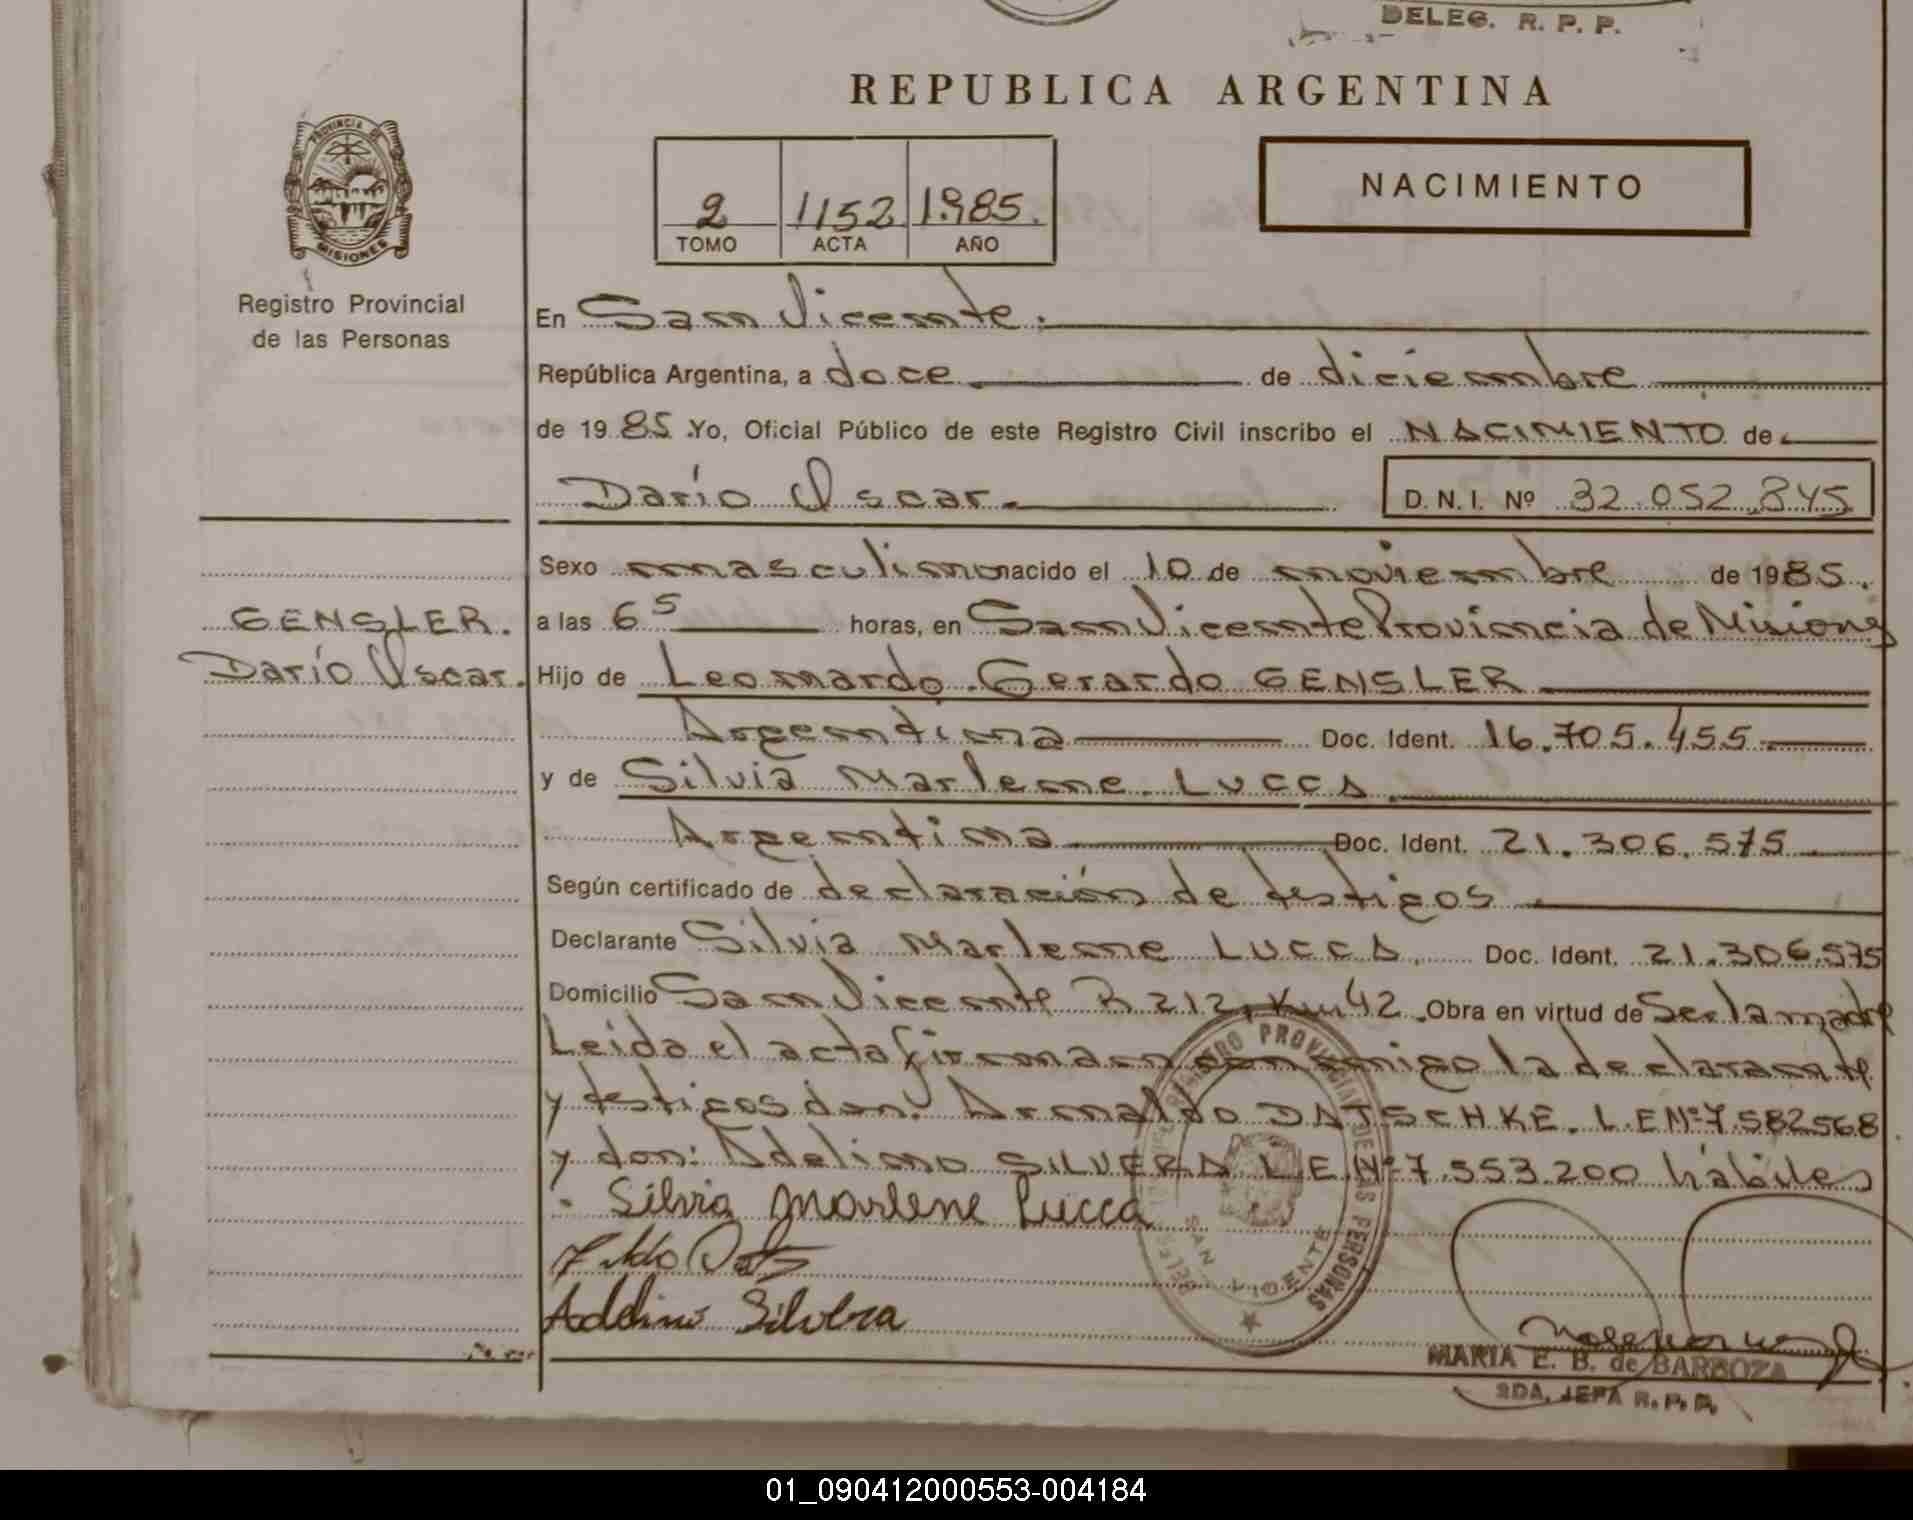 DELEG. R. P. P.
REPUBLICA ARGENTINA
PROVINCIA DE
MISIONES
Registro Provincial
de las Personas
2 1152 1985.
TOMO ACTA AÑO
NACIMIENTO
En San Vicente.
República Argentina, a doce de diciembre
de 1985 Yo, Oficial Público de este Registro Civil inscribo el NACIMIENTO de
Darío Oscar. D. N. I. Nº 32.052.845
Sexo masculino nacido el 10 de noviembre de 1985.
a las 6 5 horas, en San Vicente Provincia de Misiones
GENSLER.
Darío Oscar.
Hijo de Leonardo Gerardo GENSLER
Argentina Doc. Ident. 16.705.455
y de Silvia Marlene LUCCA
Argentina Doc. Ident. 21.306.575
Según certificado de declaración de testigos
Declarante Silvia Marlene LUCCA. Doc. Ident. 21.306.575
Domicilio San Vicente R 212, Km 42. Obra en virtud de Ser la madre
Leida el acta firman conmigo la declarante
y testigos don: Arnaldo DATSCHKE. L.E Nº 7.582568
y don: Adelino SILVERA L.E.Nº 7.553.200 hábiles
Silvia Marlene Lucca
Adelino Silvera
REGISTRO PROVINCIAL DE LAS PERSONAS
SAN VICENTE
MARIA E. B. de BARBOZA
2DA. JEFA R. P. P.
01_090412000553-004184